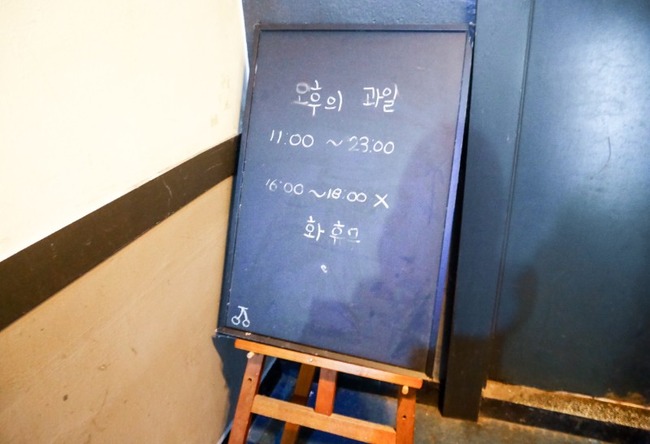 오후의 과일
11:00 ~ 23:00
16:00 ~ 18:00 X
화 휴무